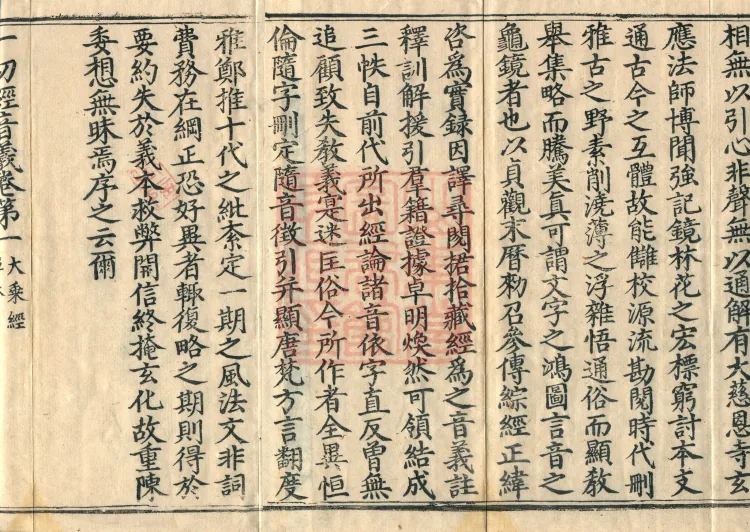 相無以引心非聲無以通解有大慈恩寺玄
應法師博聞強記鏡林花之宏標窮討本支
通古今之互體故能讎校源流勘閱時代刪
雅古之野素削澆薄之浮雜悟通俗而顯教
舉集略而騰美真可謂文字之鴻圖言音之
龜鏡者也以貞觀末曆勑召參傳綜經正緯
咨為實錄因譯尋閱捃拾藏經為之音義註
釋訓解援引羣籍證據卓明煥然可領結成
三帙自前代所出經論諸音依字直反曾無
追顧致失教義寔迷匡俗今所作者全異恒
倫隨字刪定隨音徵引并顯唐梵方言翻度
雅鄭推十代之紕紊定一期之風法文非詞
費務在綱正恐好異者輙復略之期則得於
要約失於義本救弊開信終掩玄化故重陳
委想無昧焉序之云爾
一切經音義卷第一 大乘經